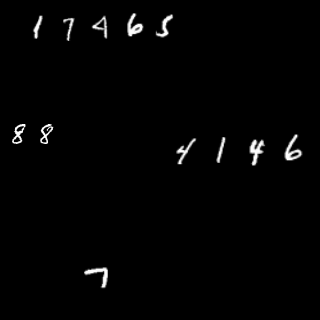 17465
88
4146
7